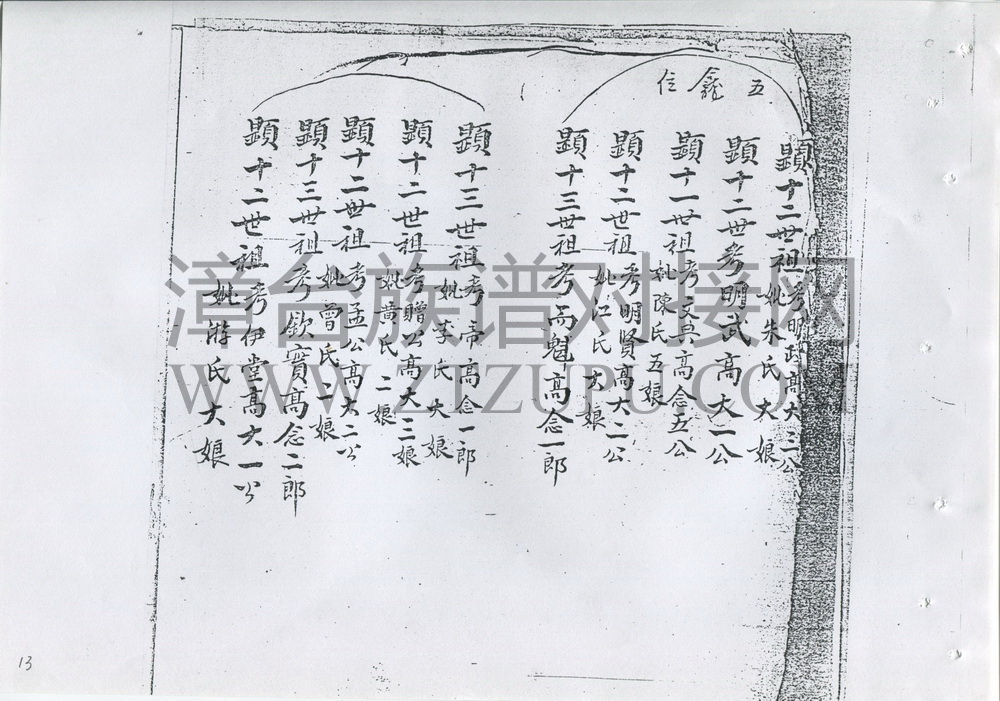 五龕位
顕十二世祖考明政高大三公
妣朱氏大娘
顕十二世考明武高大一公
顕十一世祖考文典高念五公
妣陳氏五娘
顕十二世祖考明賢高大二公
妣江氏大娘
顕十三世祖考而魁高念一郎
顕十三世祖考帝高念一郎
妣李氏大娘
顕十二世祖考贈公高大三娘
妣黄氏二娘
顕十二世祖考孟公高大二公
妣曾氏二娘
顕十三世祖考欽實高念二郎
顕十二世祖考伊堂高大一公
妣游氏大娘
漳台族谱对接网
WWW.ZTZUPU.COM
13